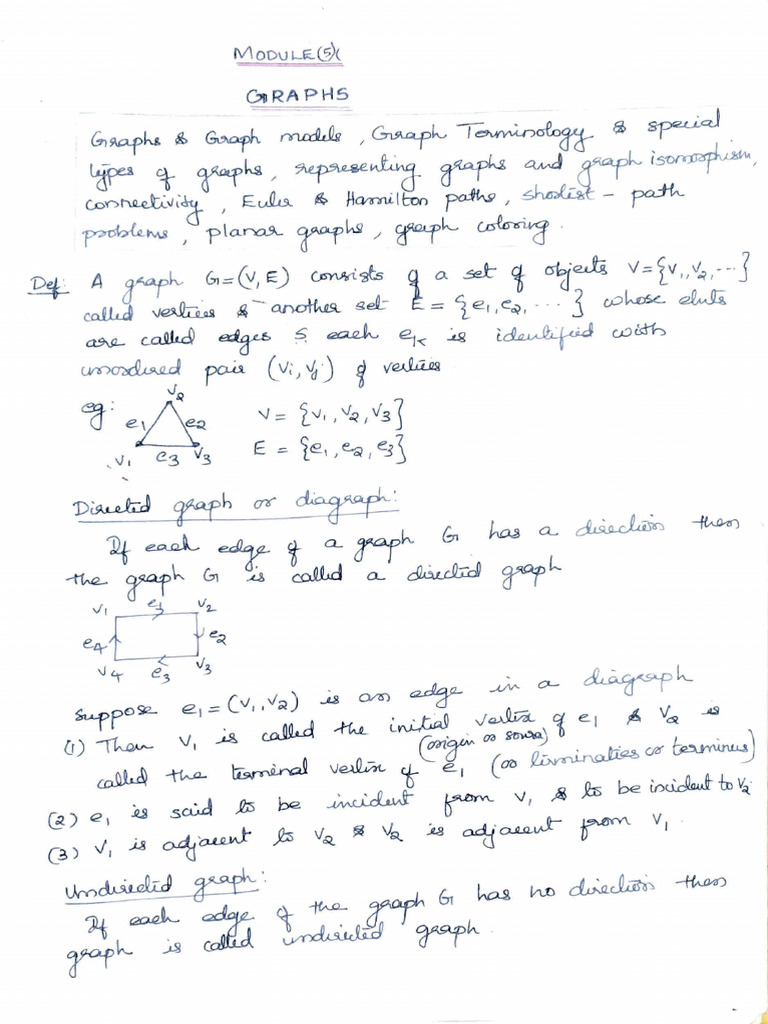 MODULE (5)
GRAPHS
Graphs & Graph models, Graph Terminology & special
types of graphs, representing graphs and graph isomorphism,
connectivity, Euler & Hamilton paths, shortest - path
problems, planar graphs, graph coloring.
Def: A graph G=(V,E) consists of a set of objects V={v1,v2,...}
called vertices & another set E = {e1,e2,....} whose elnts
are called edges & each ek is identified with
unordered pair (vi,vj) of vertices
eg: v2
e1 e2 V = {v1,v2,v3}
v1 e3 v3 E = {e1,e2,e3}
Directed graph or diagraph:
If each edge of a graph G has a direction then
the graph G is called a directed graph
v1 e1 v2
e4 e2
v4 e3 v3
suppose e1=(v1,v2) is an edge in a diagraph
(1) Then v1 is called the initial vertex of e1 & v2 is
(origin or source)
called the terminal vertex of e1 (or terminus)
(2) e1 is said to be incident from v1 & to be incident to v2.
(3) v1 is adjacent to v2 & v2 is adjacent from v1.
Undirected graph:
If each edge of the graph G has no direction then
graph is called undirected graph.